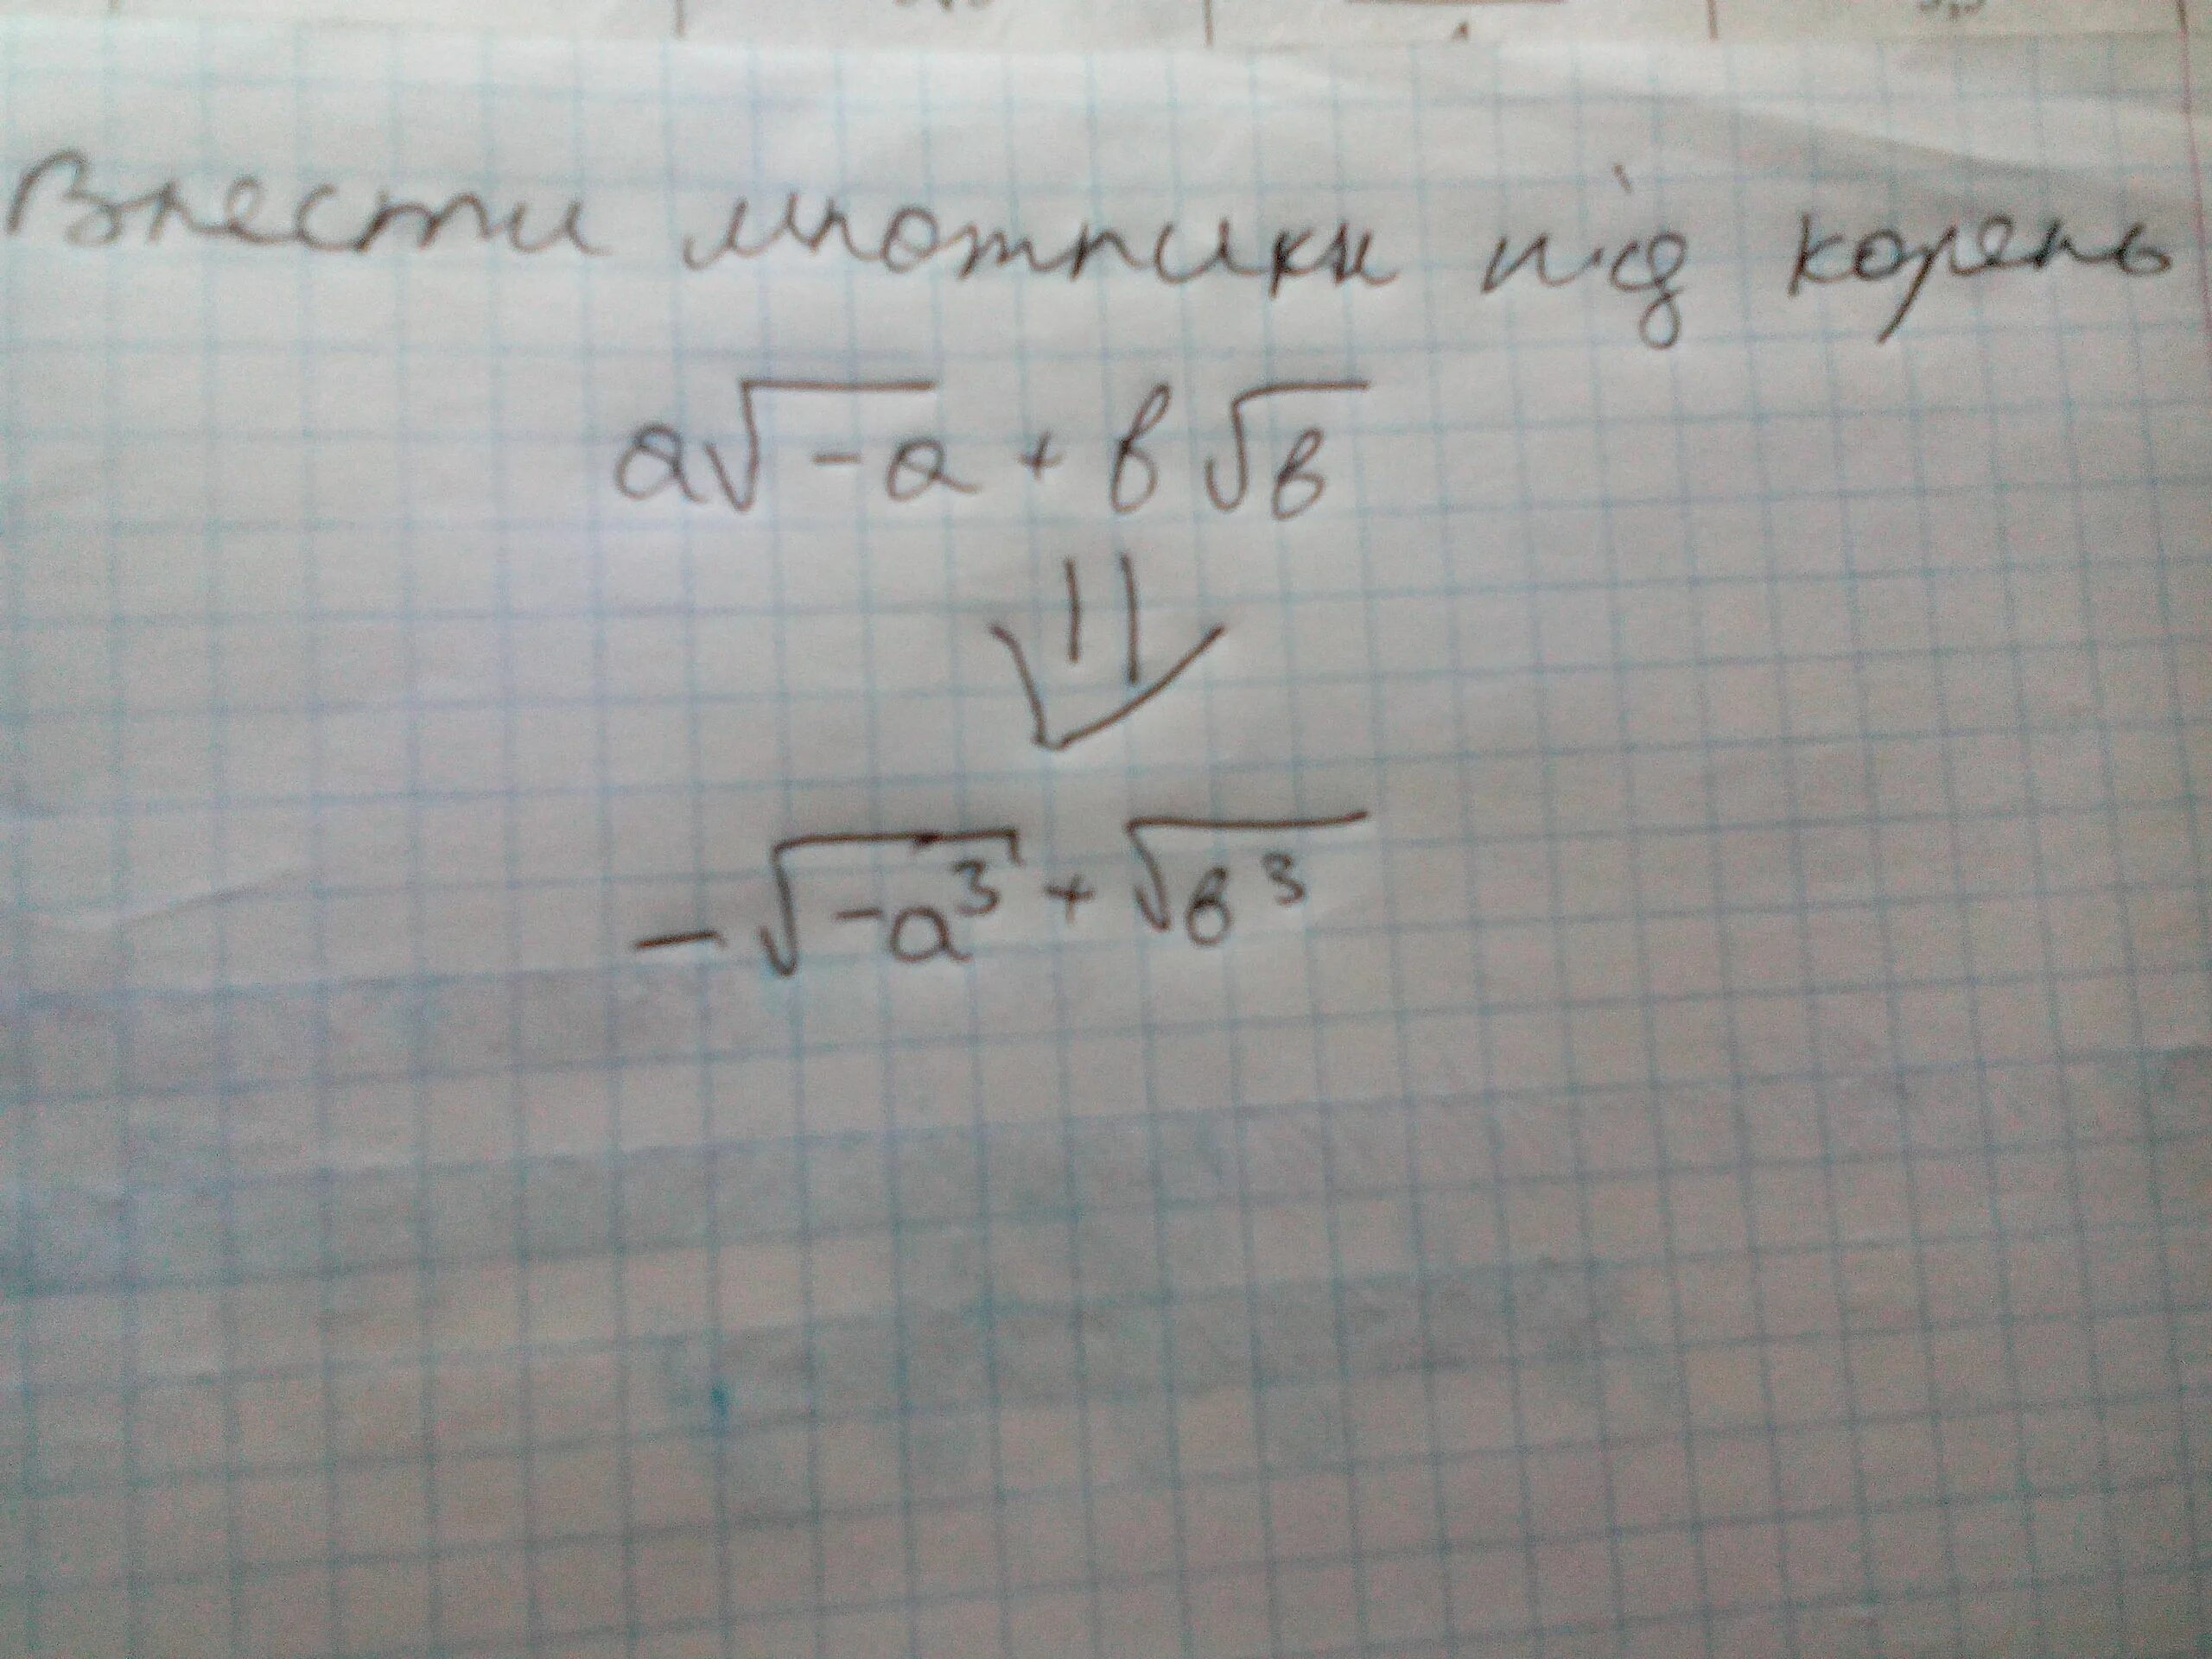 Внести множники під корень
a√-a + b√b
-√-a³ + √b³